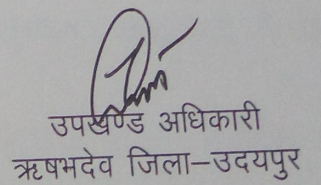 उपखण्ड अधिकारी
ऋषभदेव जिला–उदयपुर